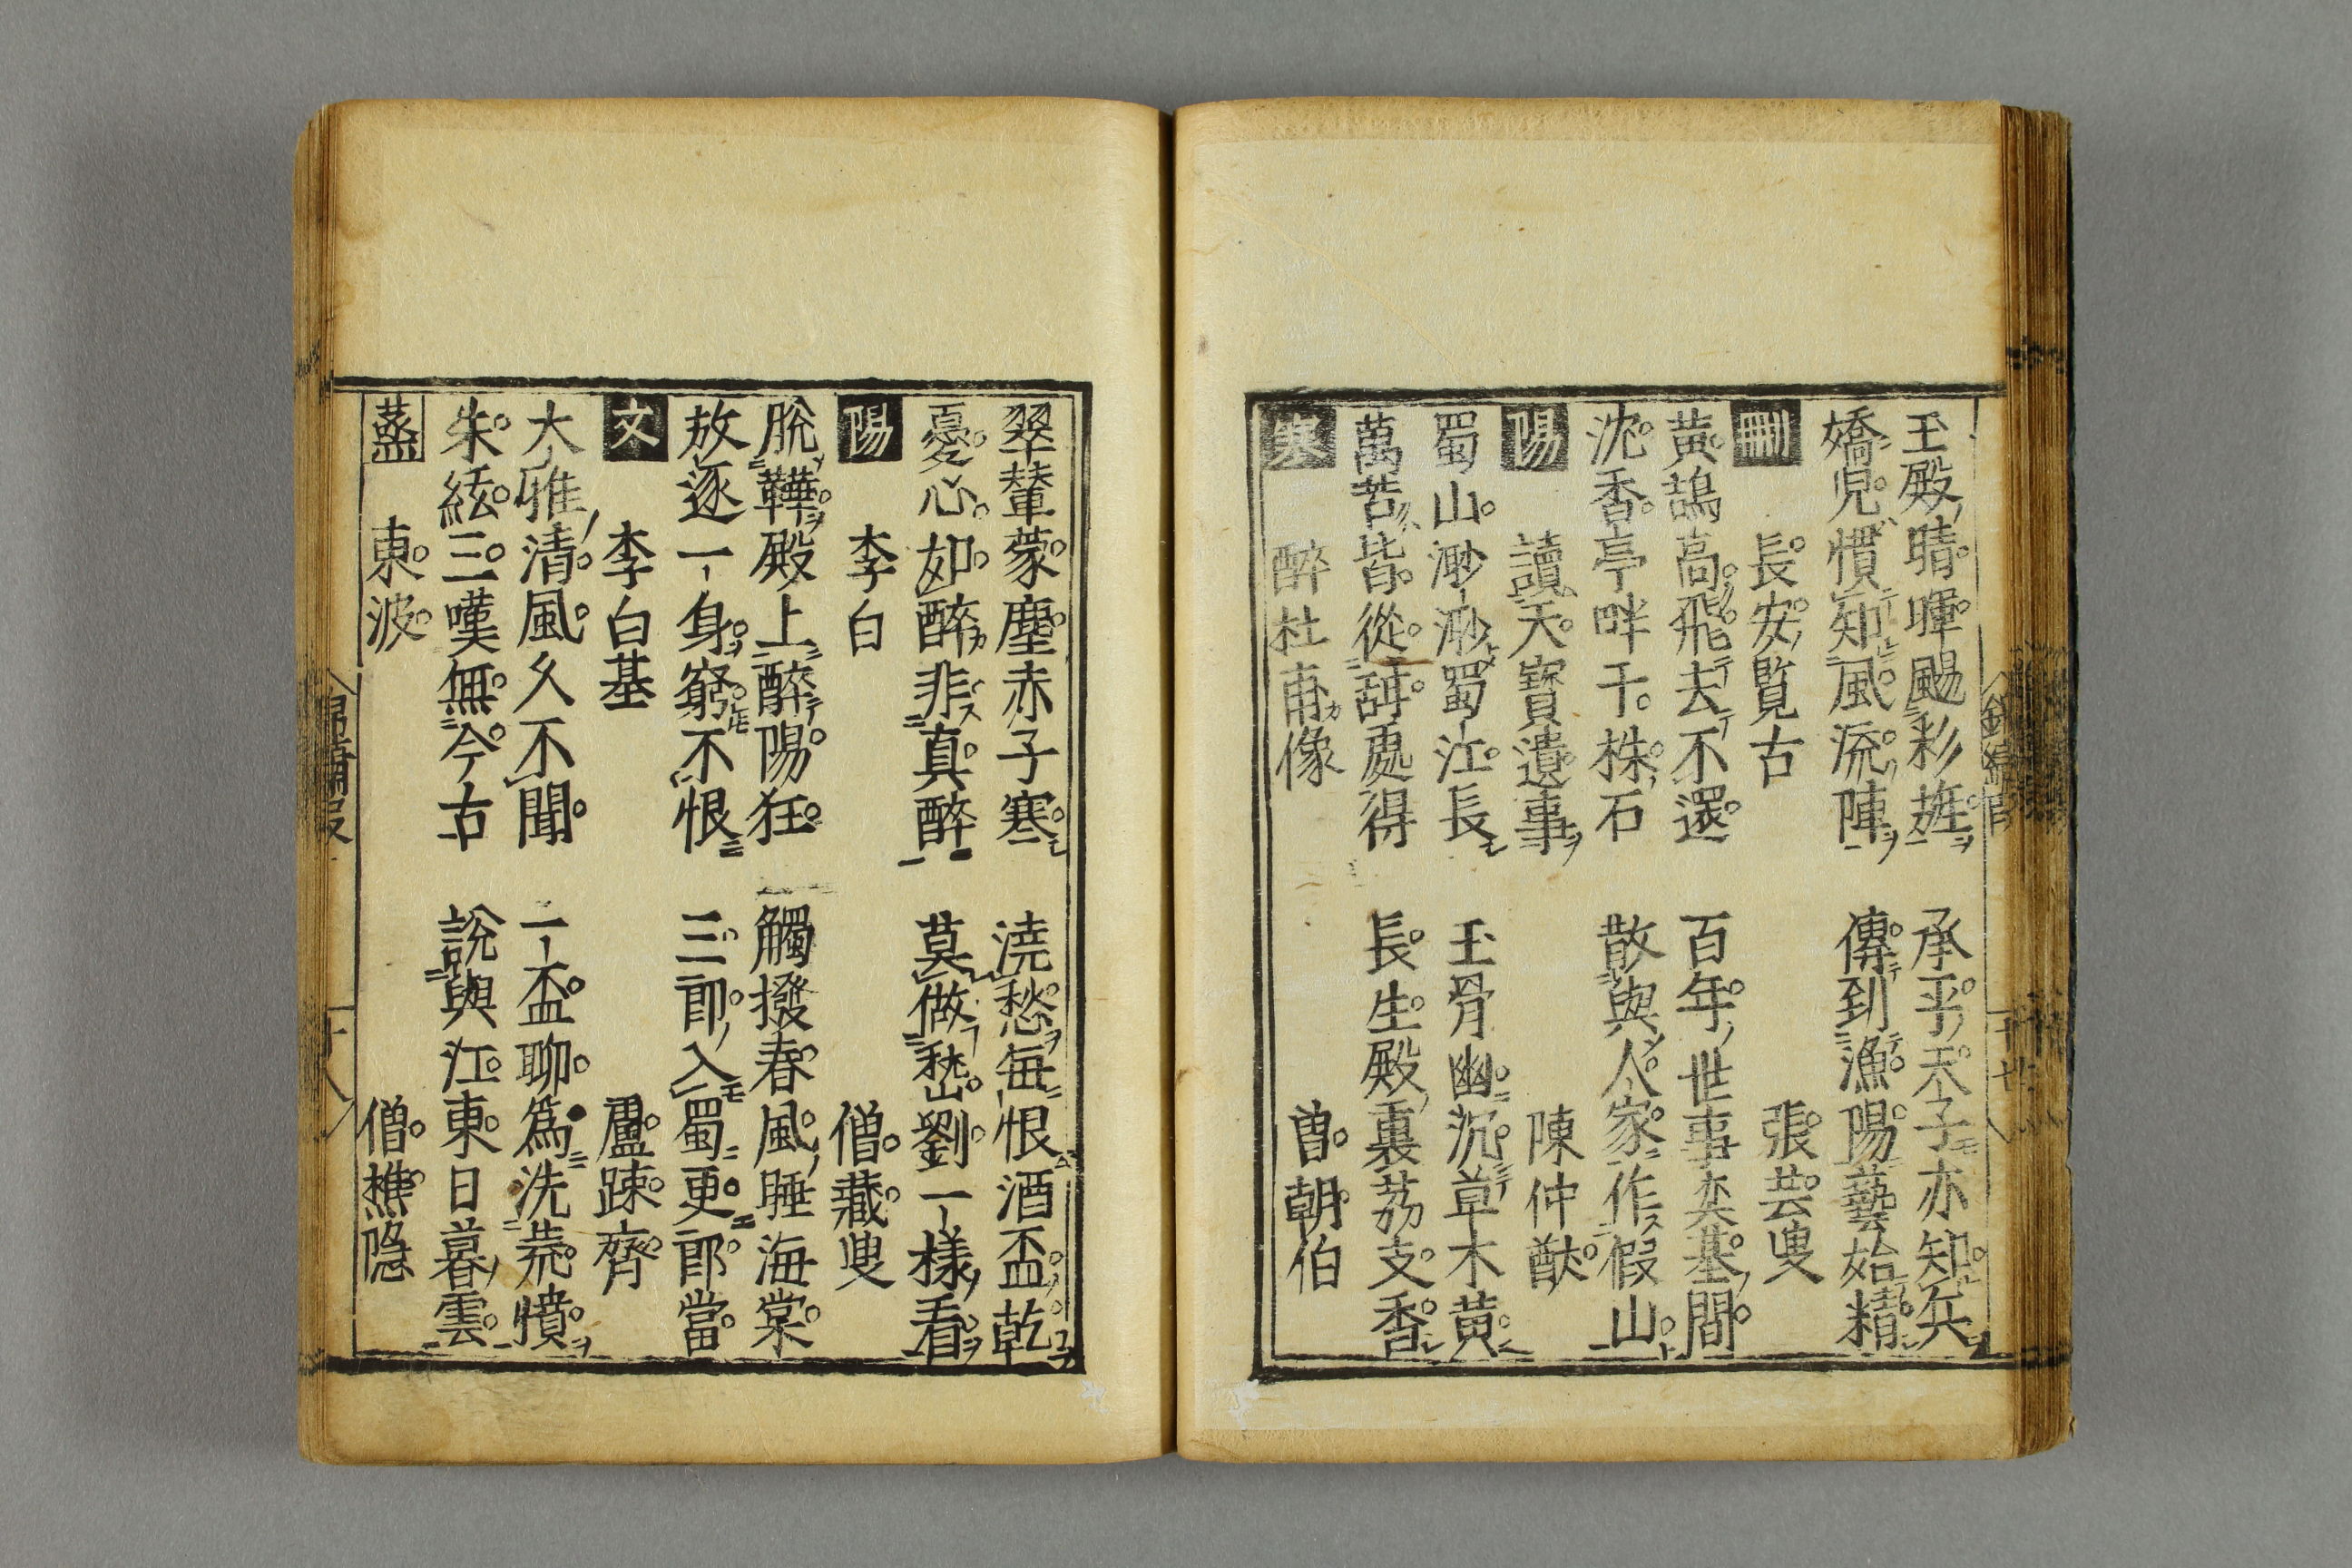 玉殿晴暉颺彩斿　承平天子亦知兵
嬌児慣知風流陣　傳到漁陽藝始精
刪　長安覧古　張芸叟
黄鵠高飛去不還　百年世事奕碁間
沈香亭畔千株石　散與人家作假山
陽　讀天寶遺事　陳仲猷
蜀山渺渺蜀江長　玉骨幽沉草木黄
萬苦皆從甜處得　長生殿裏茘支香
寒　醉杜甫像　曽朝伯
翠輦蒙塵赤子寒　澆愁毎恨酒盃乾
憂心如醉非真醉　莫做嵆劉一様看
陽　李白　僧蔵叟
脱鞾殿上醉陽狂　觸撥春風睡海棠
放逐一身窮不恨　三郎入蜀更郎當
文　李白墓　盧踈齊
大雅清風久不聞　一盃聊爲洗荒憤
朱絃三嘆無今古　説與江東日暮雲
蒸　東波　僧樵隠
十八